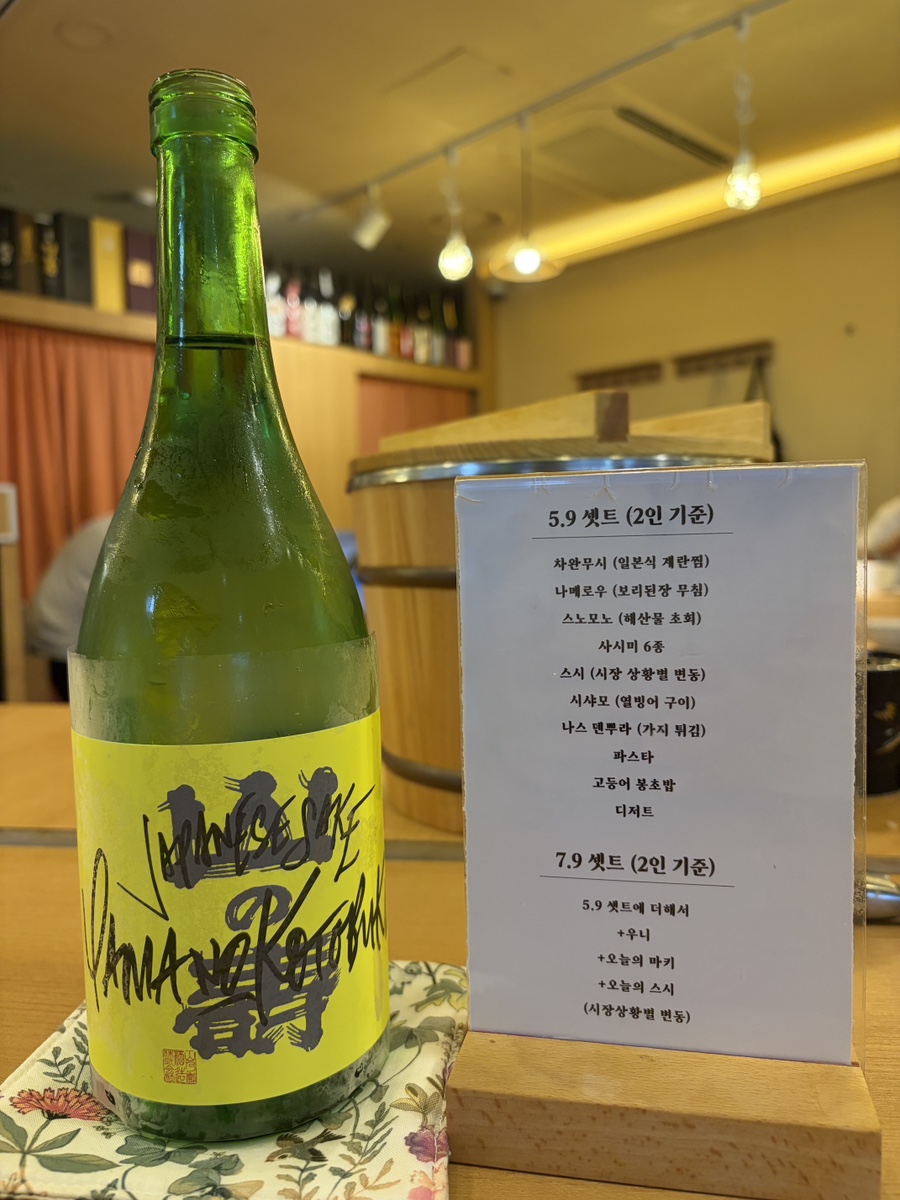 JAPANESE SAKE
YAMANO KOTOBUKI
山
の
壽
5.9 셋트 (2인 기준)
차완무시 (일본식 계란찜)
나메로우 (보리된장 무침)
스노모노 (해산물 초회)
사시미 6종
스시 (시장 상황별 변동)
시샤모 (열빙어 구이)
나스 덴뿌라 (가지 튀김)
파스타
고등어 봉초밥
디저트
7.9 셋트 (2인 기준)
5.9 셋트에 더해서
+우니
+오늘의 마키
+오늘의 스시
(시장상황별 변동)